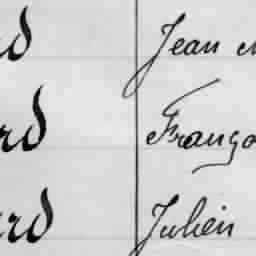 rd Jean
rd Franço
rd Julien